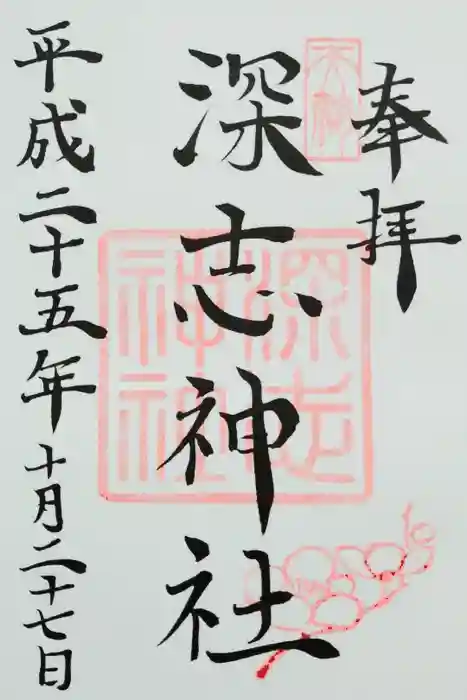 奉拝
深志神社
平成二十五年十月二十七日
深志
神社